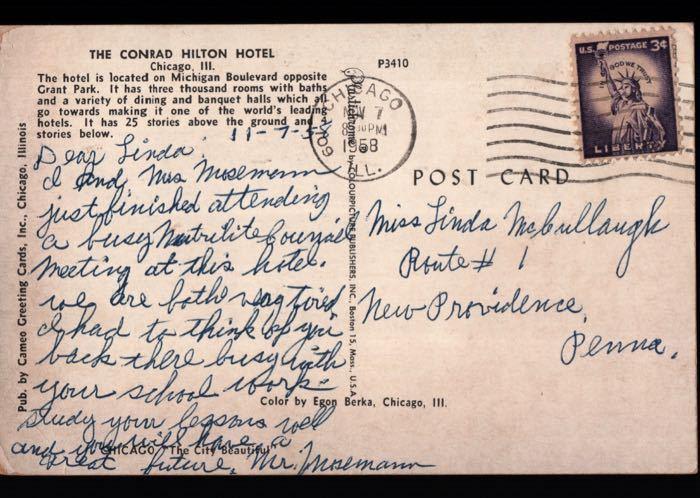 THE CONRAD HILTON HOTEL
Chicago, Ill.
The hotel is located on Michigan Boulevard opposite
Grant Park. It has three thousand rooms with baths
and a variety of dining and banquet halls which all
go towards making it one of the world's leading
hotels. It has 25 stories above the ground and
stories below.
11-7-58
Dear Linda
I and Mrs Mosemann
just finished attending
a busy Nutrilite Council
Meeting at this hotel.
we are both very tired
I had to think of you
back there busy with
your school work-
Study your lessons well
and you will have a
great future, Mr. Mosemann
CHICAGO "The City Beautiful"
Pub. by Cameo Greeting Cards, Inc., Chicago, Illinois
P3410
by COLOURPICTURE PUBLISHERS, INC., Boston 15, Mass., U.S.A.
CHICAGO
NOV 7
PM
1958
ILL.
U.S. POSTAGE 3¢
IN GOD WE TRUST
LIBERTY
POST CARD
Miss Linda McCullaugh
Route # 1
New Providence,
Penna.
Color by Egon Berka, Chicago, Ill.